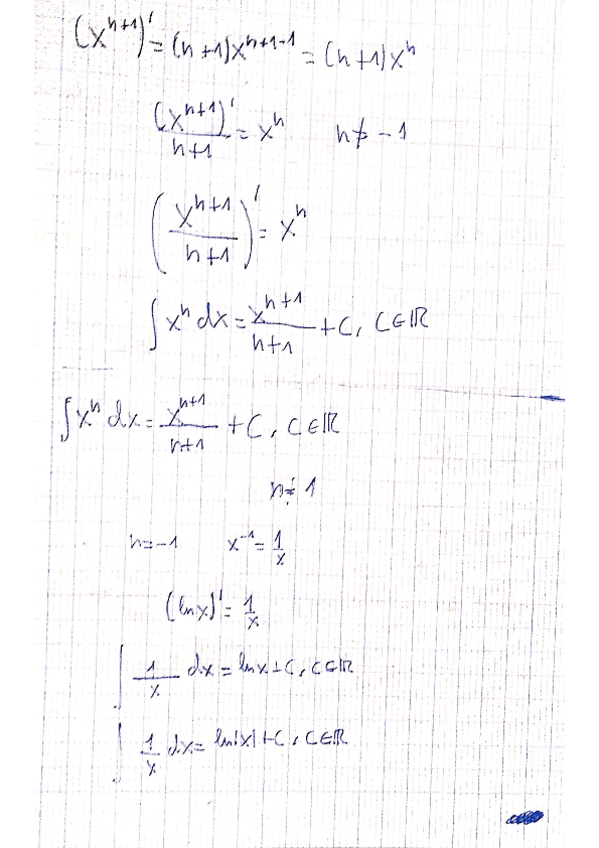 (xⁿ⁺¹)' = (n+1)xⁿ⁺¹⁻¹ = (n+1)xⁿ
(xⁿ⁺¹)'/n+1 = xⁿ n ≠ -1
(xⁿ⁺¹/n+1)' = xⁿ
∫xⁿ dx = xⁿ⁺¹/n+1 + C, C∈ℝ
∫xⁿ dx = xⁿ⁺¹/n+1 + C, C∈ℝ
n ≠ 1
n = -1 x⁻¹ = 1/x
(ln x)' = 1/x
∫ 1/x dx = ln x + C, C∈ℝ
∫ 1/x dx = ln|x| + C, C∈ℝ